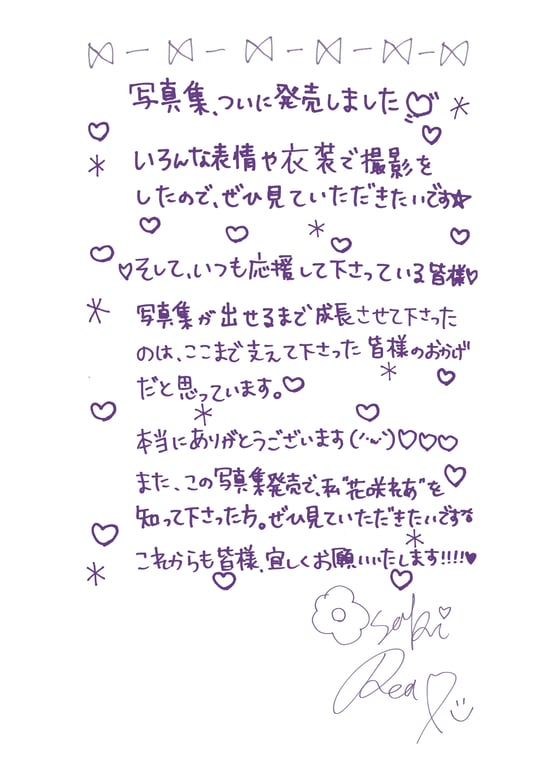 写真集、ついに発売しました♡
いろんな表情や衣装で撮影を
したので、ぜひ見ていただきたいです☆
♡そして、いつも応援して下さっている皆様♡
写真集が出せるまで成長させて下さった
のは、ここまで支えて下さった皆様のおかげ
だと思っています。♡
本当にありがとうございます(˙ᵕ˙)♡♡♡
また、この写真集発売で、私"花咲れあ"を
知って下さった方。ぜひ見ていただきたいです
これからも皆様、宜しくお願いいたします!!!!♥
saki
Rea